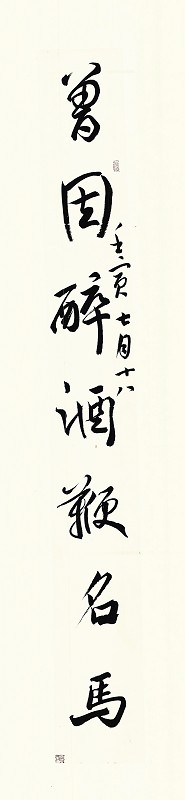 曾因醉酒鞭名馬
壬寅七月十八